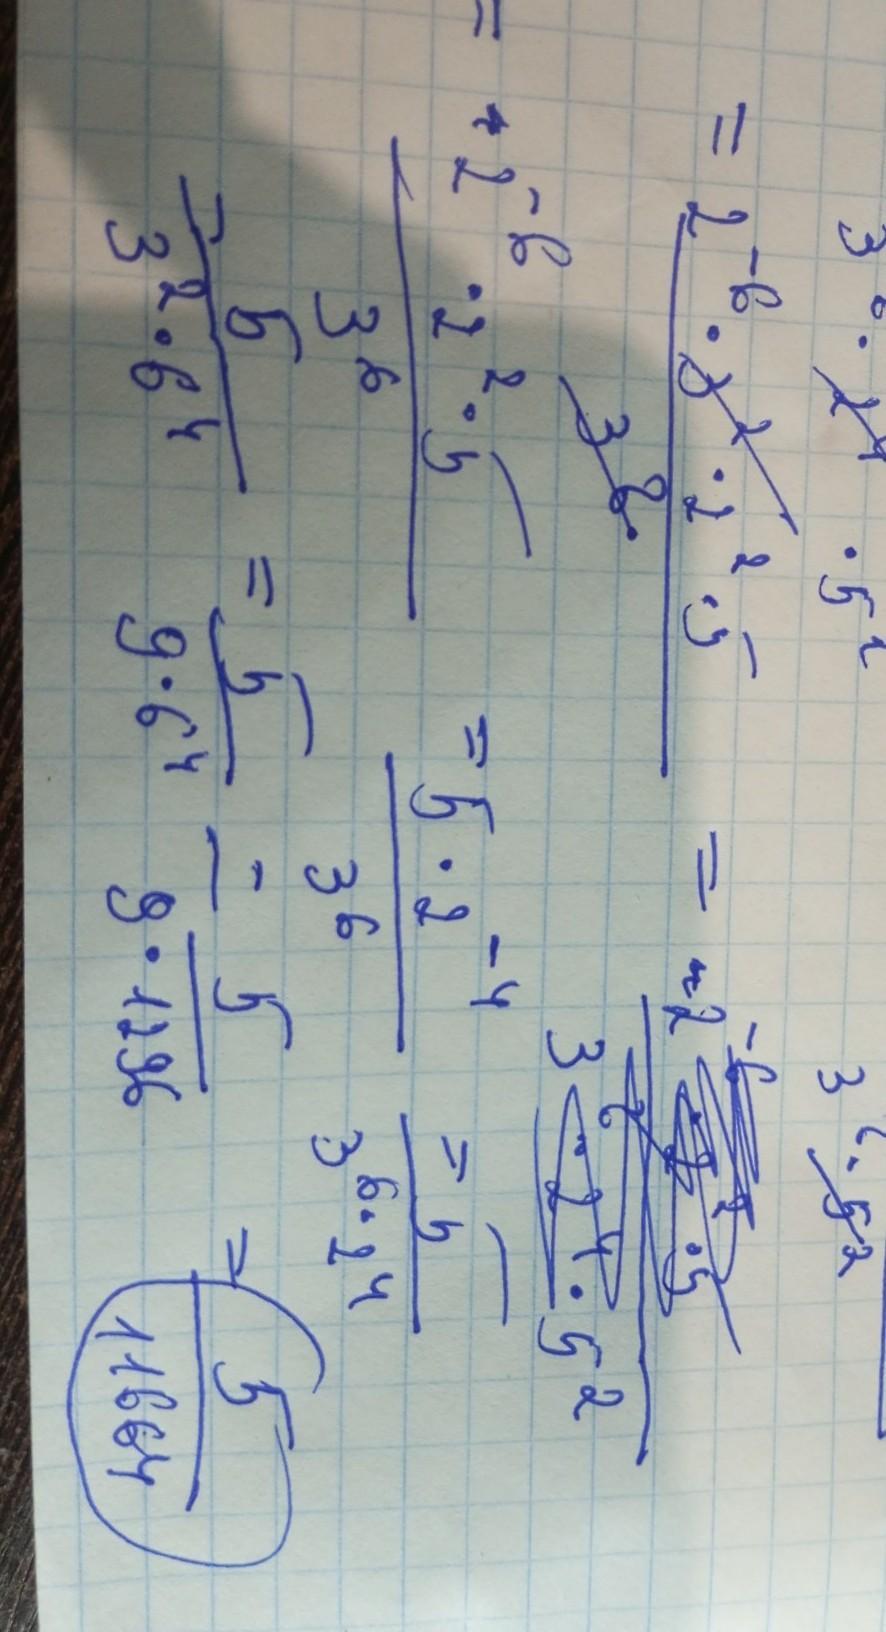 3⁶ · 2⁴ · 5² 3⁶ · 5²
= 2⁻⁶ · 3² · 2² · 5 / 3⁸ = 2⁻⁶ · 5 / 3 · 2⁴ · 5²
= 2⁻⁶ · 2² · 5 / 3⁶ = 5 · 2⁻⁴ / 3⁶ = 5 / 3⁶ · 2⁴
= 5 / 3² · 6⁴ = 5 / 9 · 6⁴ = 5 / 9 · 1296 = 5 / 11664